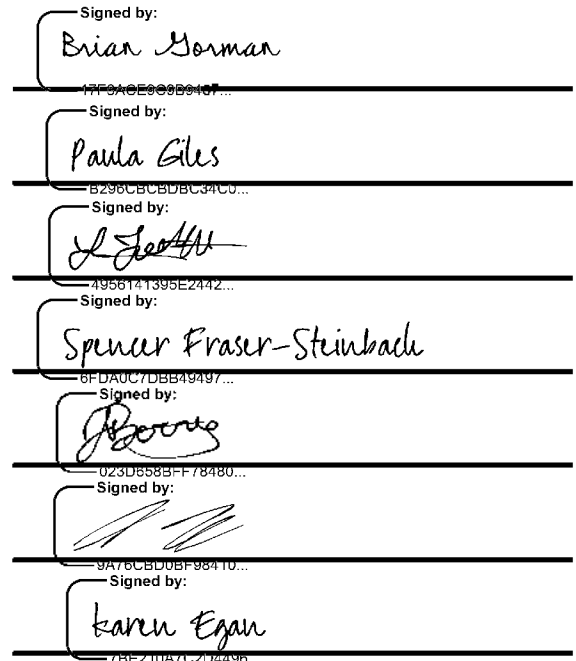 Signed by:
Brian Gorman
Signed by:
Paula Giles
B296CBCBDBC34C0...
Signed by:
4956141395E2442...
Signed by:
Spencer Fraser-Steinbach
6FDA0C7DBB49497...
Signed by:
023D658BFF78480...
Signed by:
9A76CBD0BF98410...
Signed by:
Karen Egan